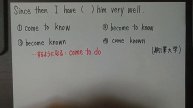 Since then, I have (  ) him very well.
① come to know ② become to know
③ become known ④ come known
〜するようになる: come to do